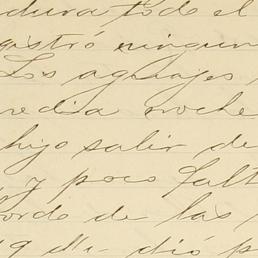 dura todo el
gistró ningun
Los aguajes
media noche
hijo salir de
y poco falt
bordo de las
19 M— dió p